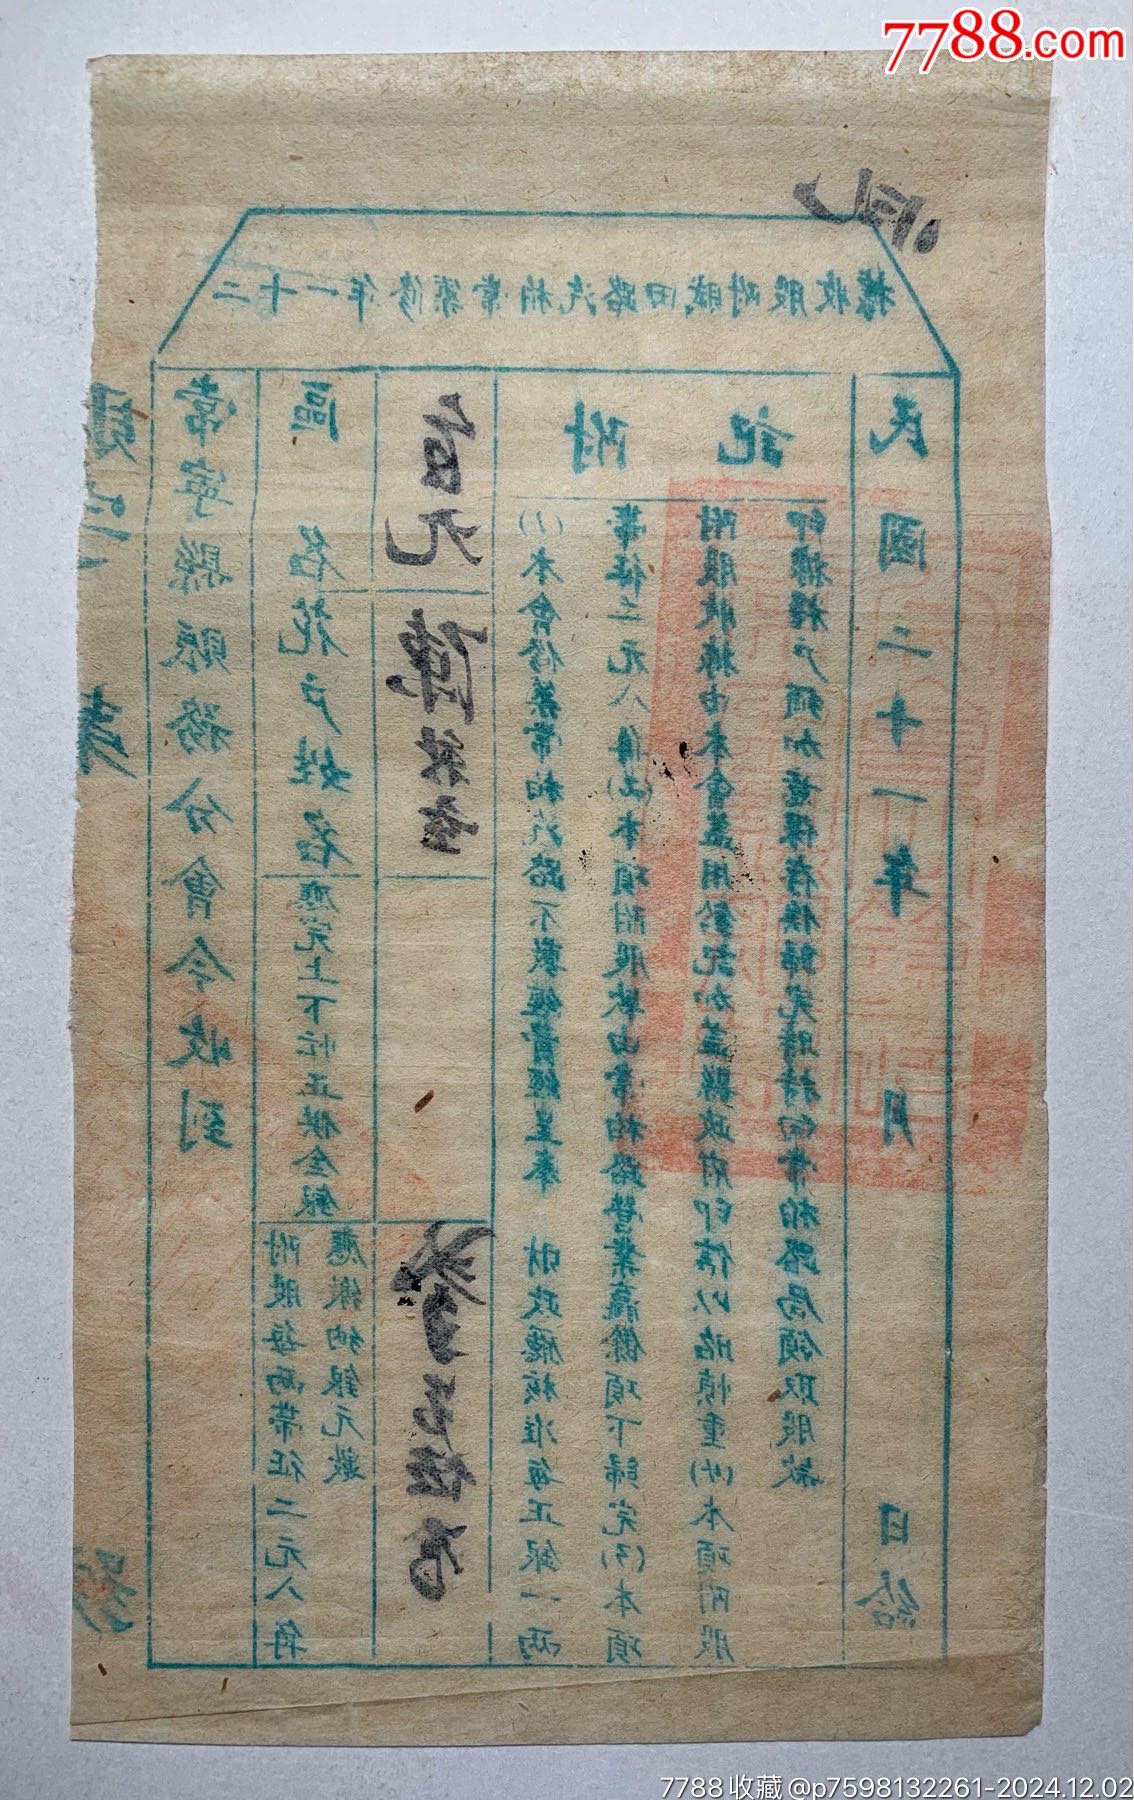 7788.com
二十一年修築常柏汽路田賦附股收據
常寧縣賑務分會今收到
區
名花戶姓名
應完上下忙正供全銀
附股每兩帶征二元八角
應繳納銀元數
附記
(1)本會修築常柏汽路不敷經費經呈奉 財政廳核准每正銀一兩
帶征二元八角(2)本項附股款由常柏路營業贏餘項下歸完(3)本項
附股收據由本會蓋用鈐記加蓋縣政府印信以昭慎重(4)本項附股
印據糧戶須加意保存俟歸完時持向常柏路局領取股款
民國二十一年 月 日給
7788收藏@p7598132261-2024.12.02